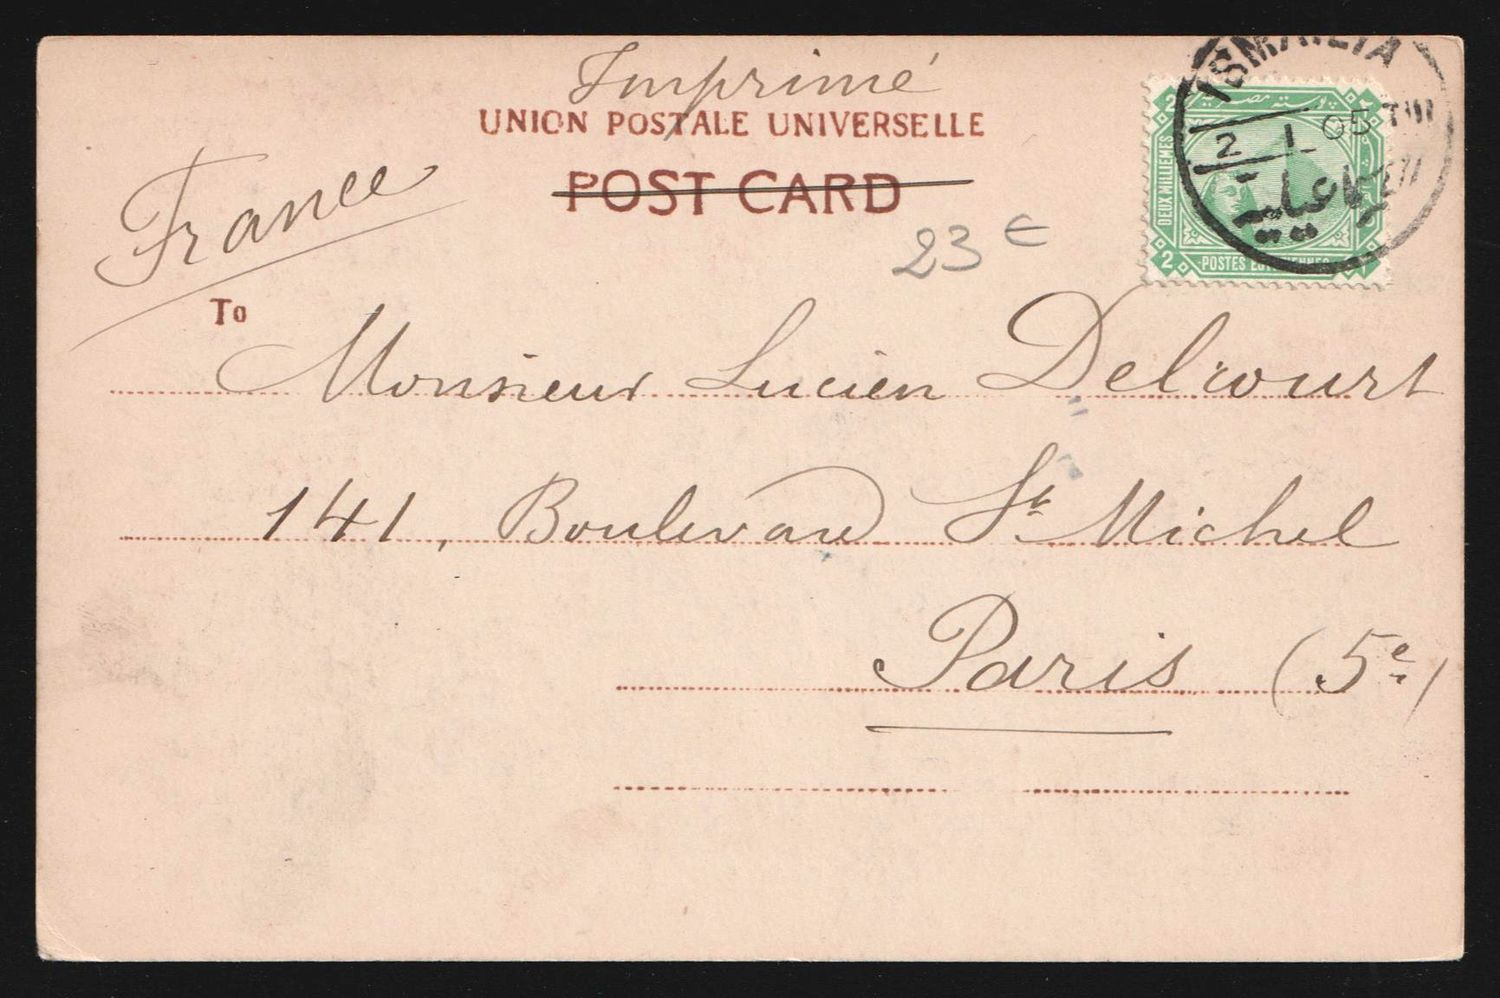 Imprimé
UNION POSTALE UNIVERSELLE
POST CARD
France
23 €
To
Monsieur Lucien Delcourt
141, Boulevard St Michel
Paris (5e)
ISMAILIA
2 I 05 T III
2 بوسته مصريه 2
DEUX MILLIEMES
2 POSTES EGYPTIENNES